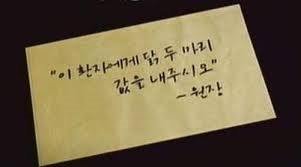 "이 환자에게 닭 두 마리
값을 내주시오"
-원장